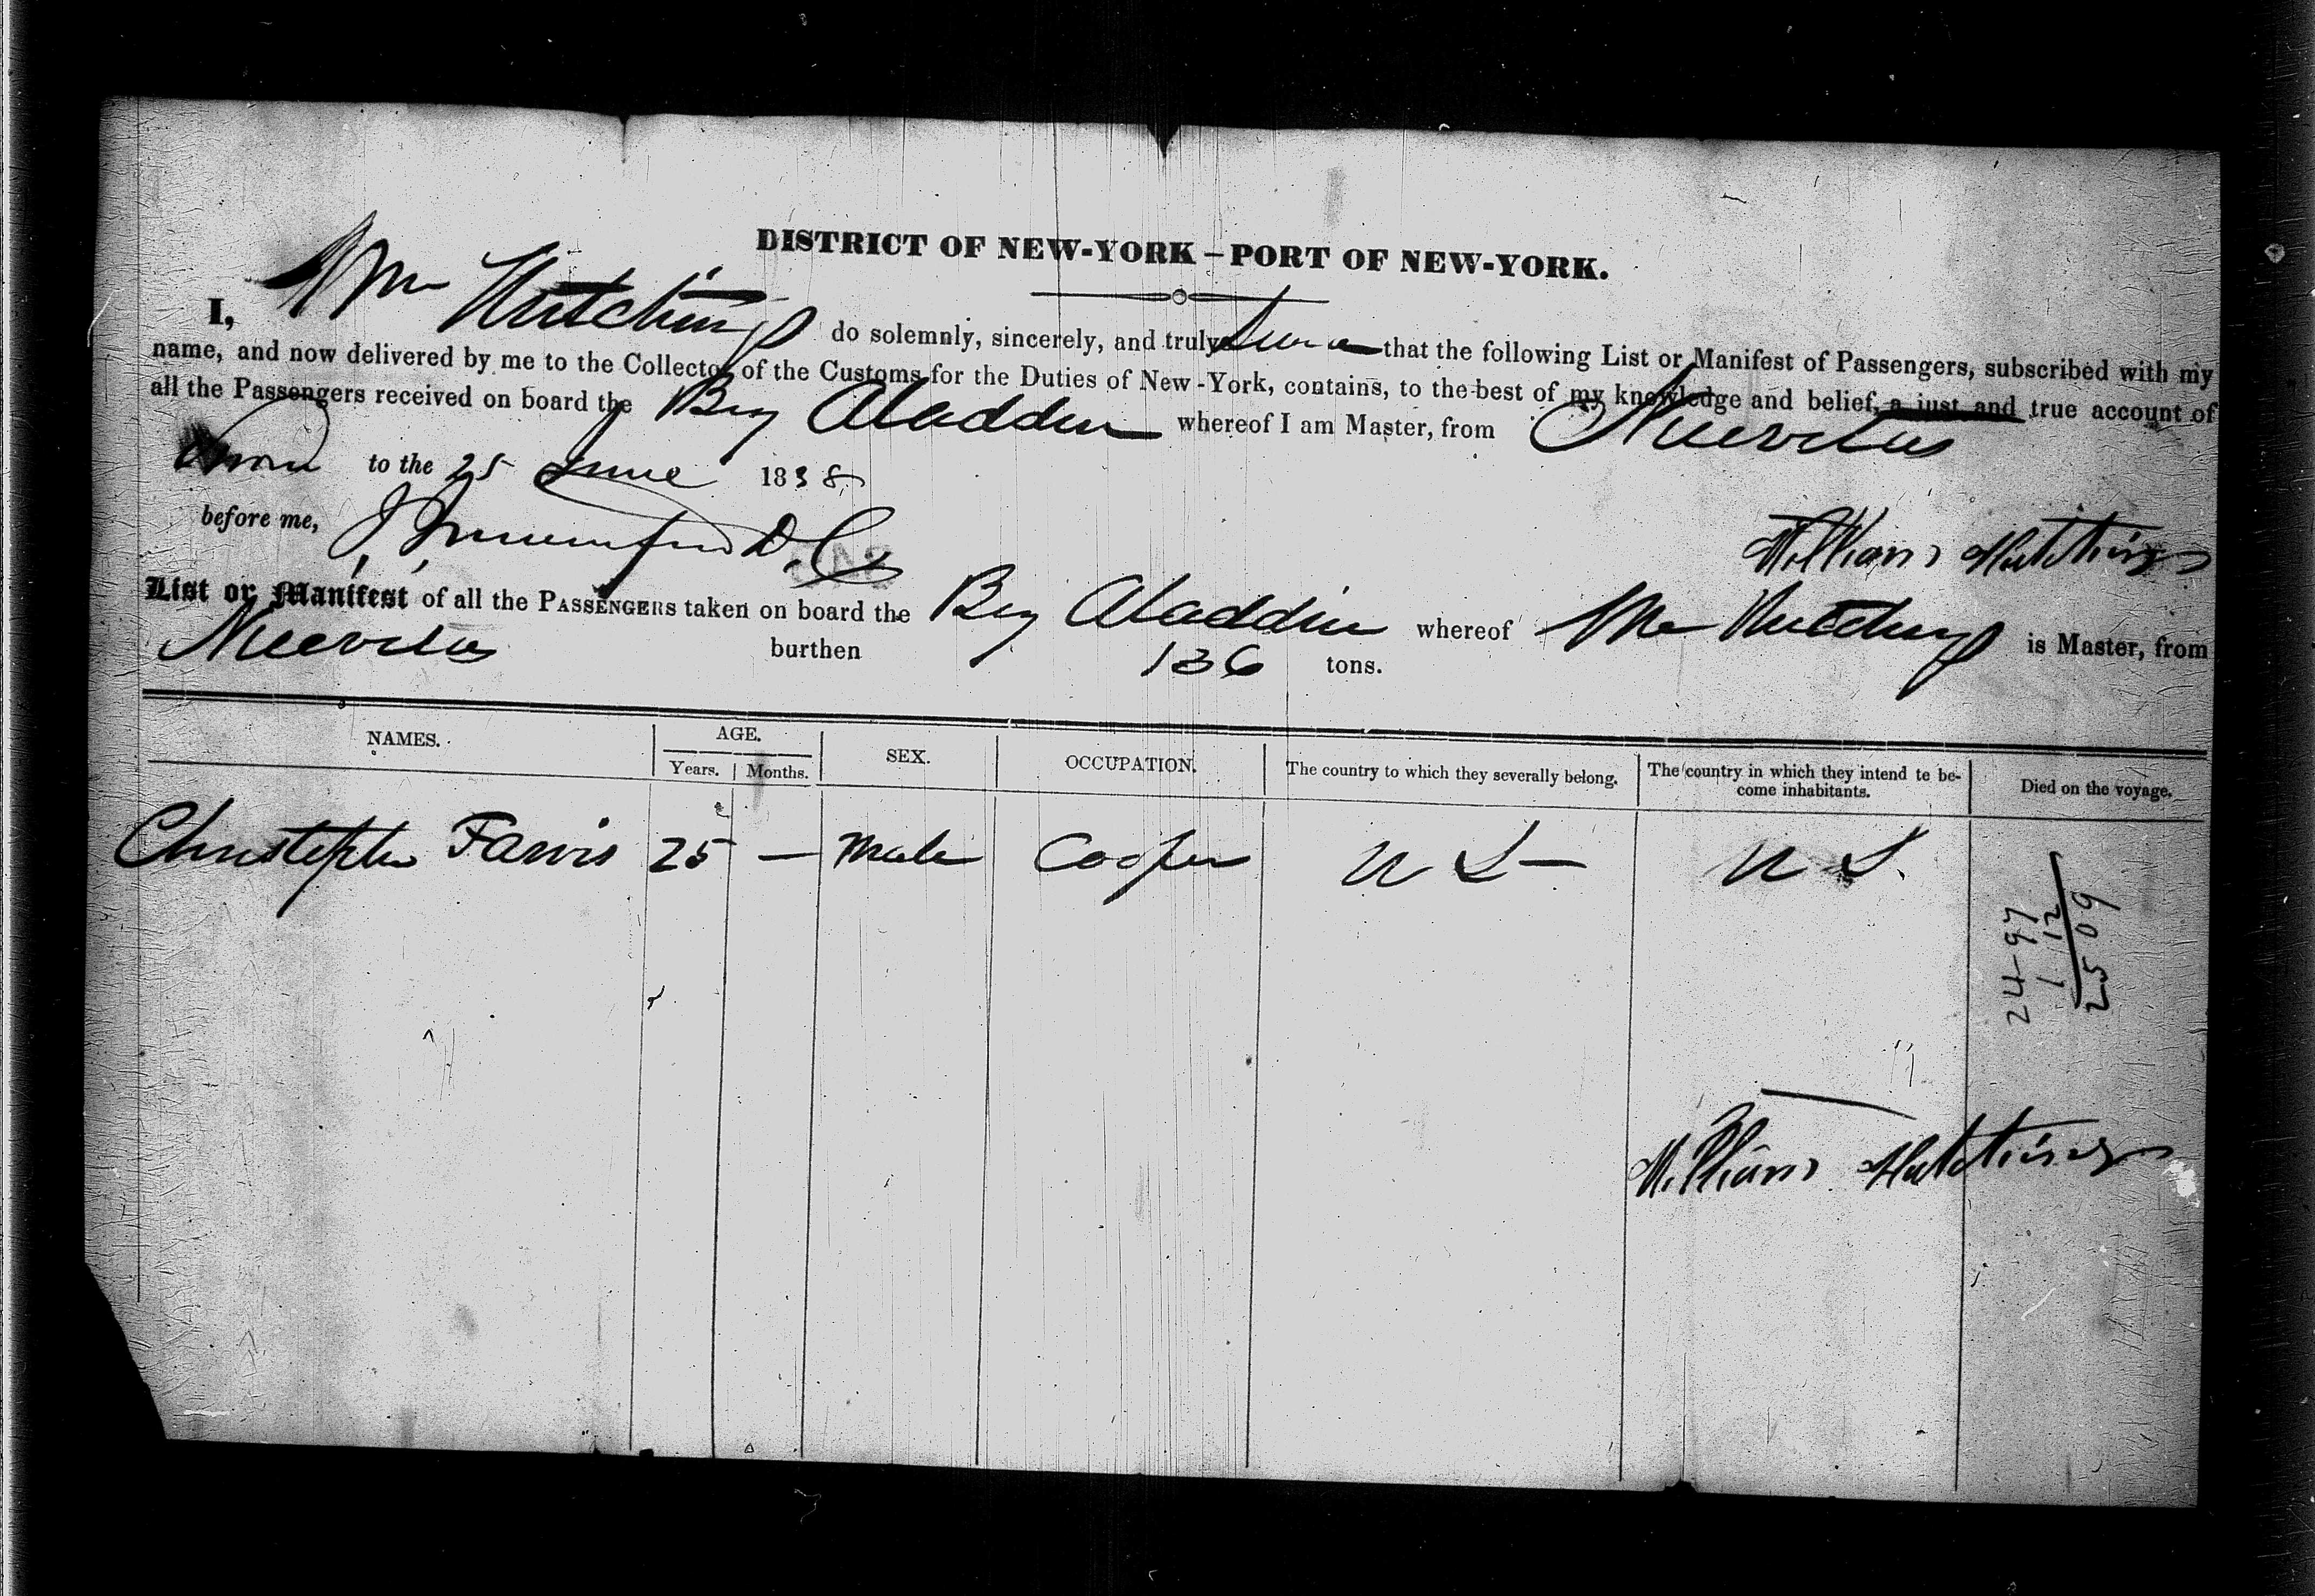 DISTRICT OF NEW-YORK – PORT OF NEW-YORK.
I, Wm Hutchings do solemnly, sincerely, and truly swear that the following List or Manifest of Passengers, subscribed with my
name, and now delivered by me to the Collector of the Customs for the Duties of New-York, contains, to the best of my knowledge and belief, a just and true account of
all the Passengers received on board the Brig Aladdin whereof I am Master, from Nuevitas
Sworn to the 25 June 1838
before me, D. C.
William Hutchings
List or Manifest of all the PASSENGERS taken on board the Brig Aladdin whereof Wm Hutchings is Master, from
Nuevitas burthen 136 tons.
NAMES. AGE. SEX. OCCUPATION. The country to which they severally belong. The country in which they intend te be-
come inhabitants. Died on the voyage.
Years. Months.
Christopher Farvis 25 — Male Cooper U S — U S.
24-97
1 12
25 09
William Hutchings